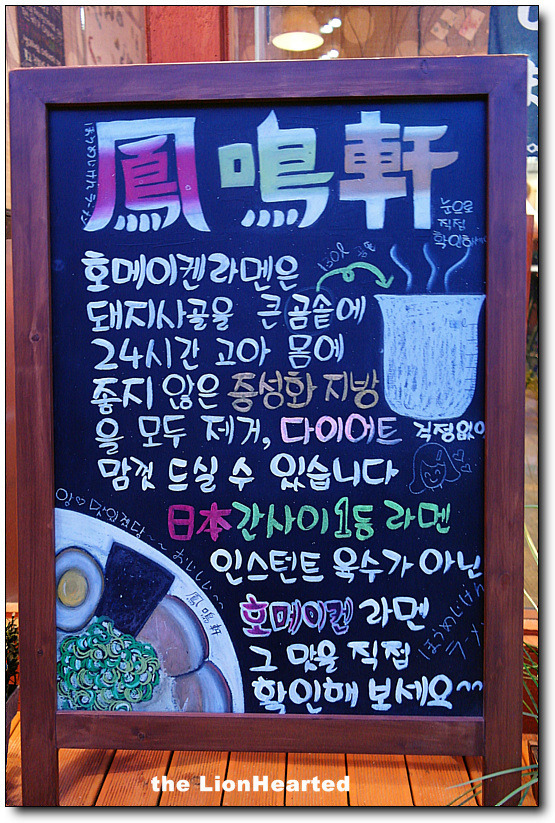 鳳鳴軒
눈으로
직접
확인해
130ℓ 곰솥
호메이켄라멘은
돼지사골을 큰곰솥에
24시간 고아 몸에
좋지 않은 중성화 지방
을 모두 제거, 다이어트 걱정없이
맘껏 드실 수 있습니다
日本간사이1등 라멘
인스턴트 육수가 아닌
호메이켄 라멘
그 맛을 직접
확인해 보세요~~
おいしい~
鳳鳴軒
the LionHearted